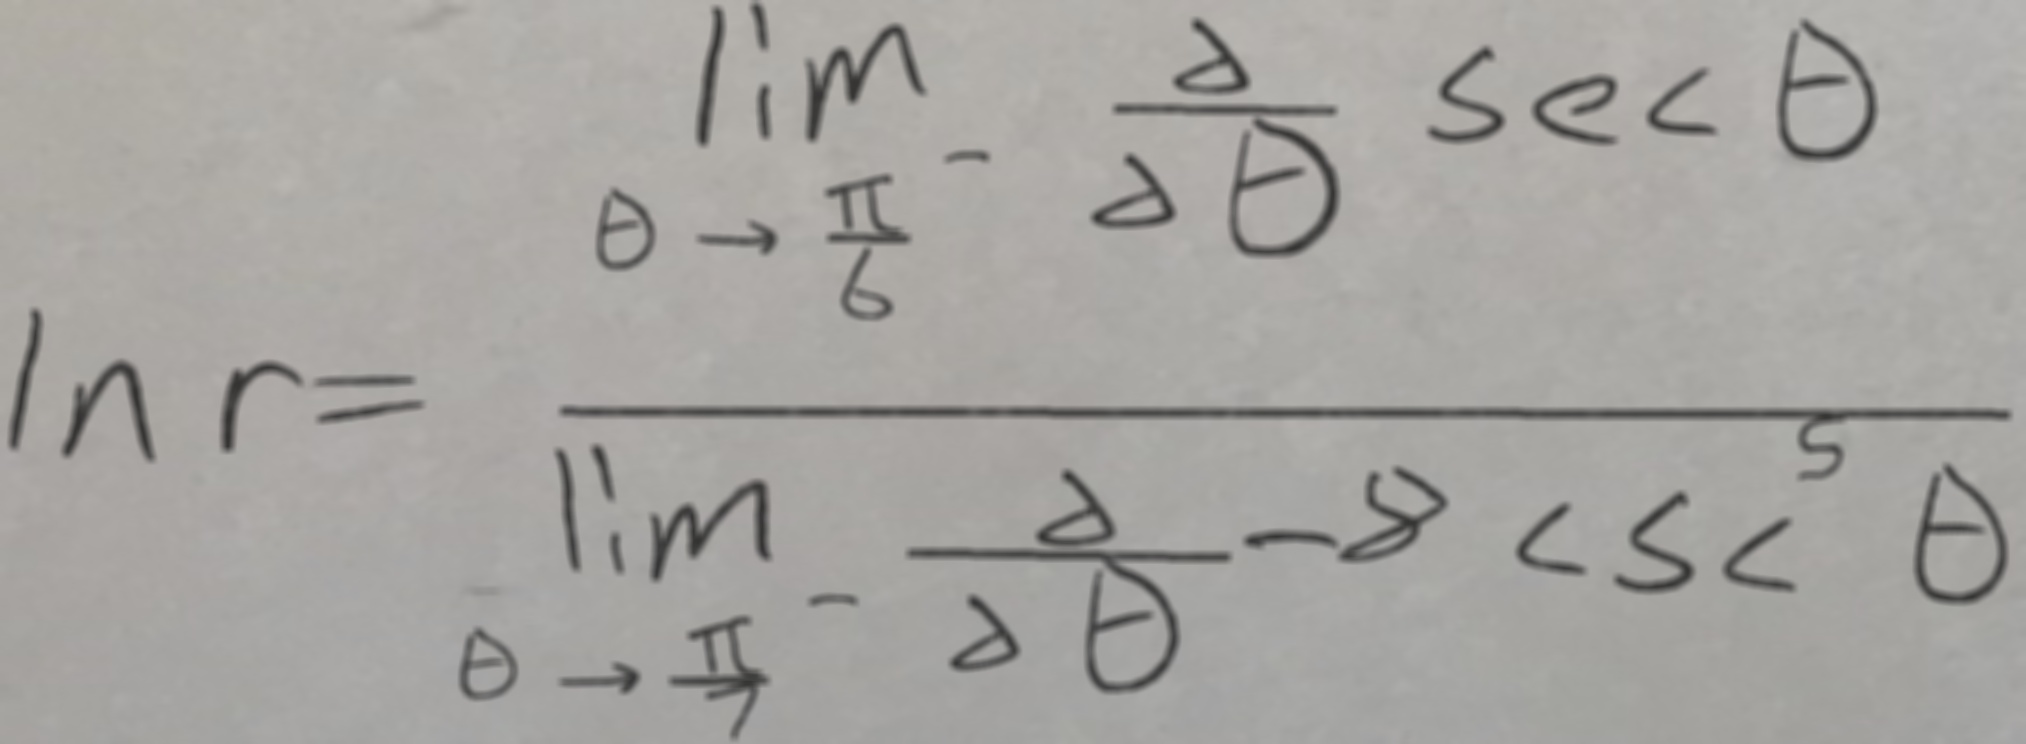 ln r = \frac{\lim_{\theta \to \frac{\pi}{6}^-} \frac{\partial}{\partial \theta} \sec \theta}{\lim_{\theta \to \frac{\pi}{7}^-} \frac{\partial}{\partial \theta} -8 \csc^5 \theta}